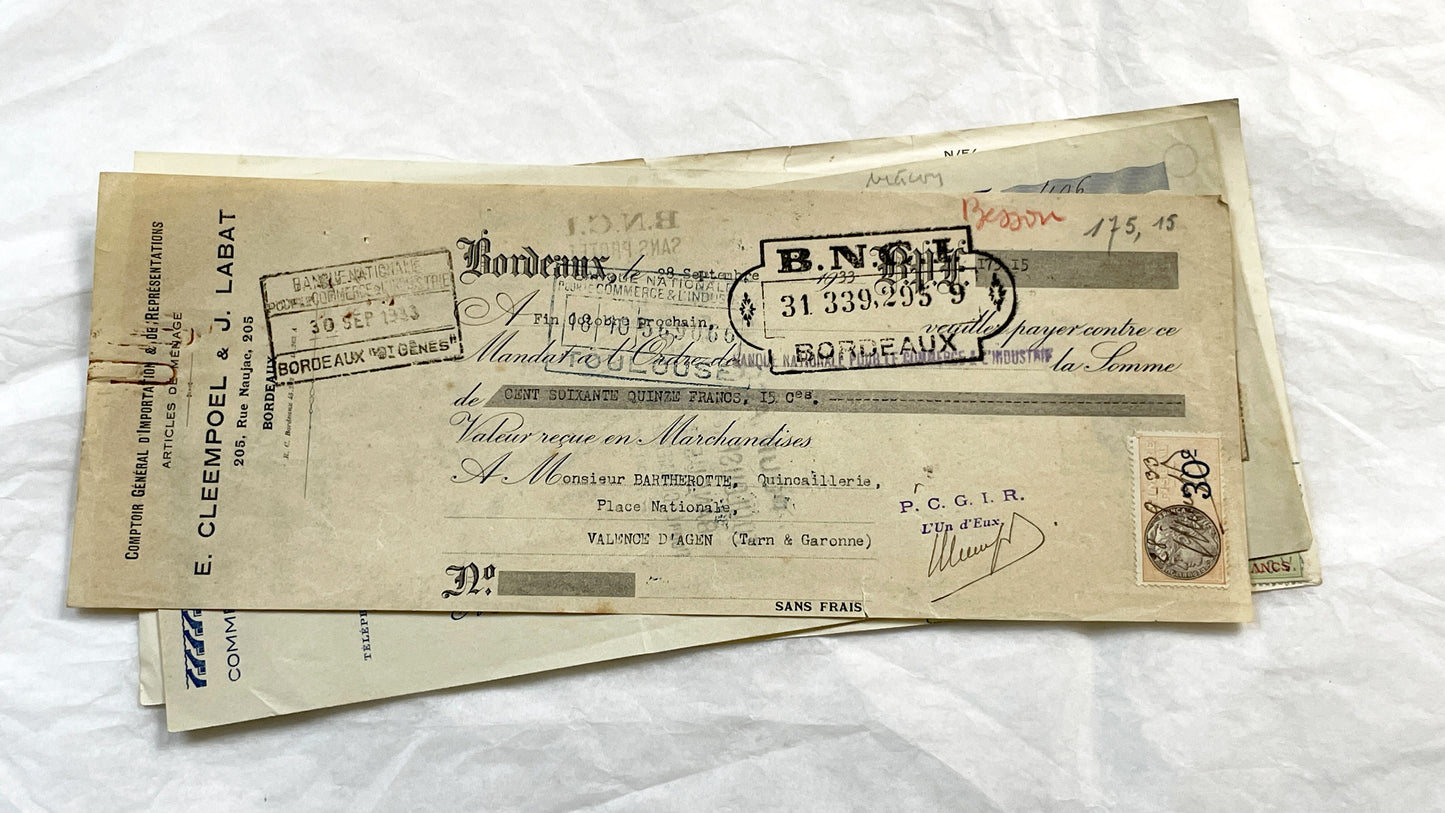 N/E/
406
Besson
175, 15
COMPTOIR GÉNÉRAL D'IMPORTATION & DE REPRÉSENTATIONS
ARTICLES DE MÉNAGE
E. CLEEMPOEL & J. LABAT
205, Rue Naujac, 205
BORDEAUX
BANQUE NATIONALE
POUR LE COMMERCE & L'INDUSTRIE
30 SEP 1933
BORDEAUX "DIGÈNES"
B.N.C.I.
SANS PROTÊT
Bordeaux, le 28 Septembre 1933 B.P.F. 175, 15
B.N.C.I.
31 339,295 9
BORDEAUX
BANQUE NATIONALE
POUR LE COMMERCE & L'INDUSTRIE
TOULOUSE
A Fin Octobre prochain, veuillez payer contre ce
Mandat à l'Ordre de BANQUE NATIONALE POUR LE COMMERCE & L'INDUSTRIE la Somme
de CENT SOIXANTE QUINZE FRANCS, 15 Ces.
Valeur reçue en Marchandises
A Monsieur BARTHEROTTE, Quincaillerie,
Place Nationale,
VALENCE D'AGEN (Tarn & Garonne)
P. C. G. I. R.
L'Un d'Eux,
30c
No.
SANS FRAIS
ANCS.
COMME
TÉLÉP